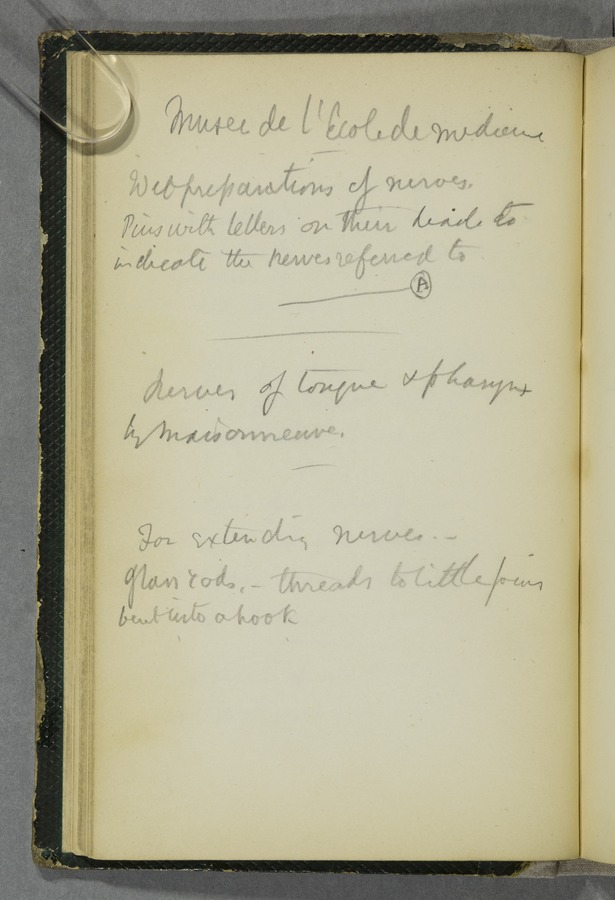 Musee de l'Ecole de medecine
Wet preparations of nerves.
Pins with letters on their heads to
indicate the nerves referred to
A
Nerves of tongue & pharynx
by Maisonneuve.
For extending nerves. -
glass rods, - threads to little pins
bent into a hook